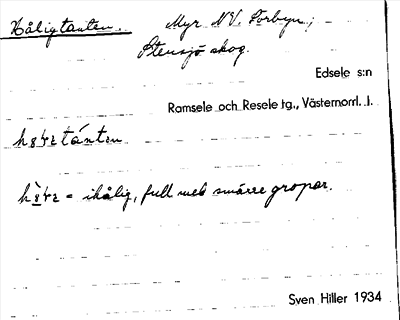 Håligtanten. Myr NV. Forbyn;
Stensjö skog.
Edsele s:n
Ramsele och Resele tg., Västernorrl. l.
= ihålig, full med smärre gropar.
Sven Hiller 1934